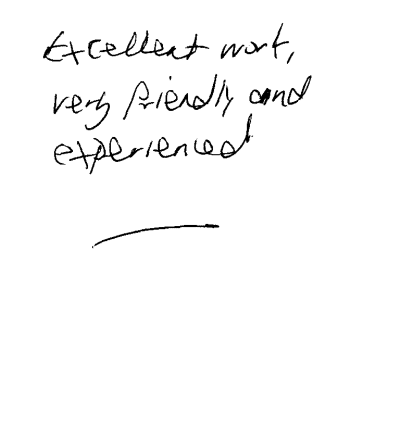 Excellent work,
very friendly and
experienced